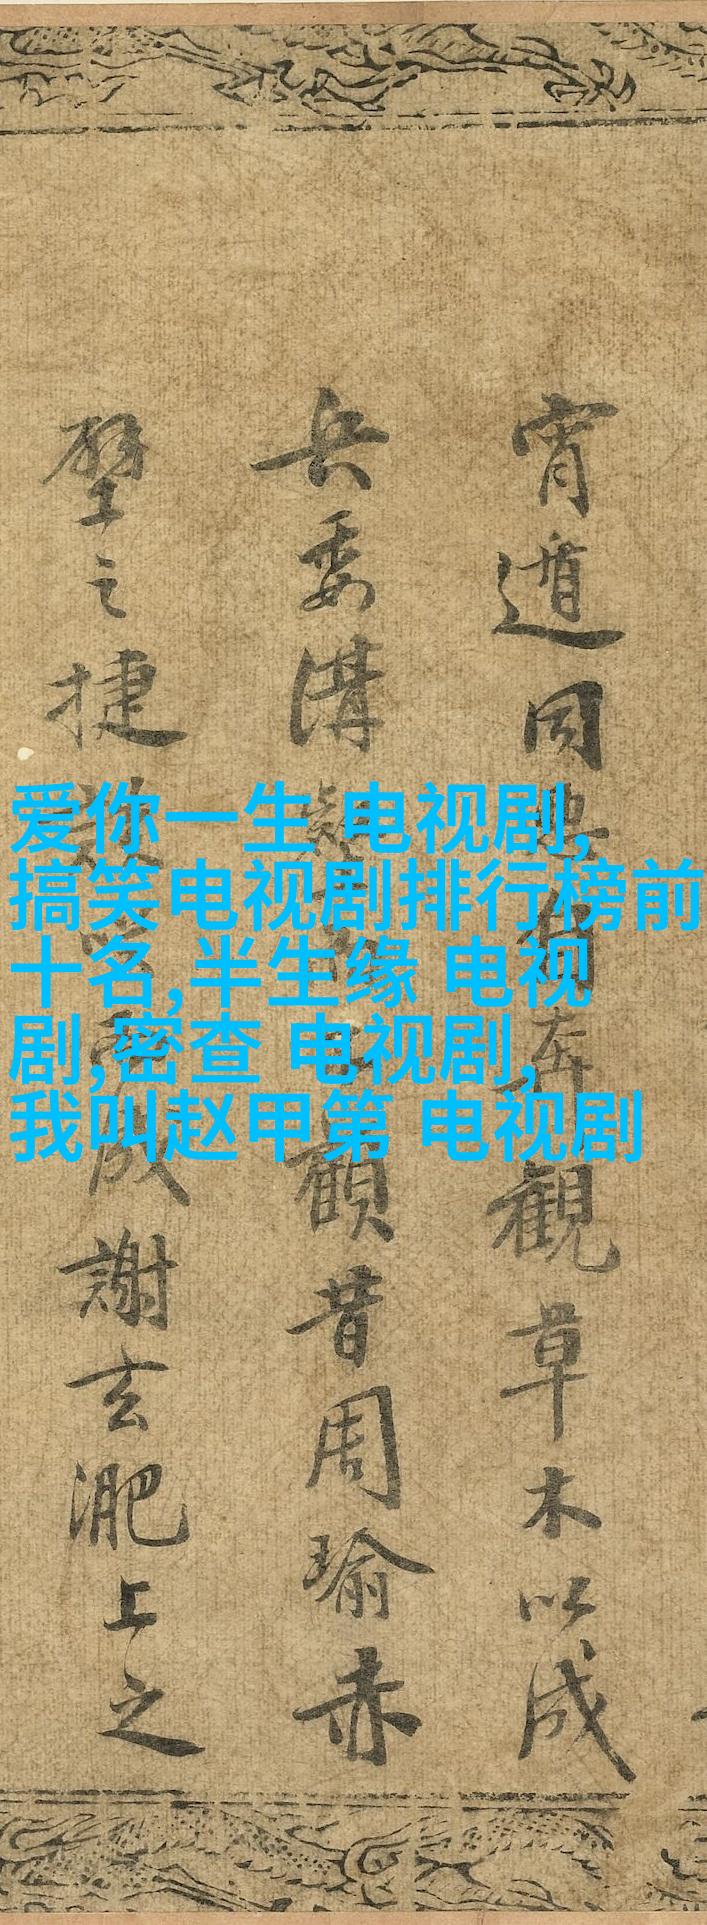 宵遁同奔觀草木以成
兵委溝顧昔周瑜赤
壁之捷談笑而成謝玄淝上之
爱你一生 电视剧,
搞笑电视剧排行榜前
十名,半生缘 电视
剧,密查 电视剧,
我叫赵甲第 电视剧